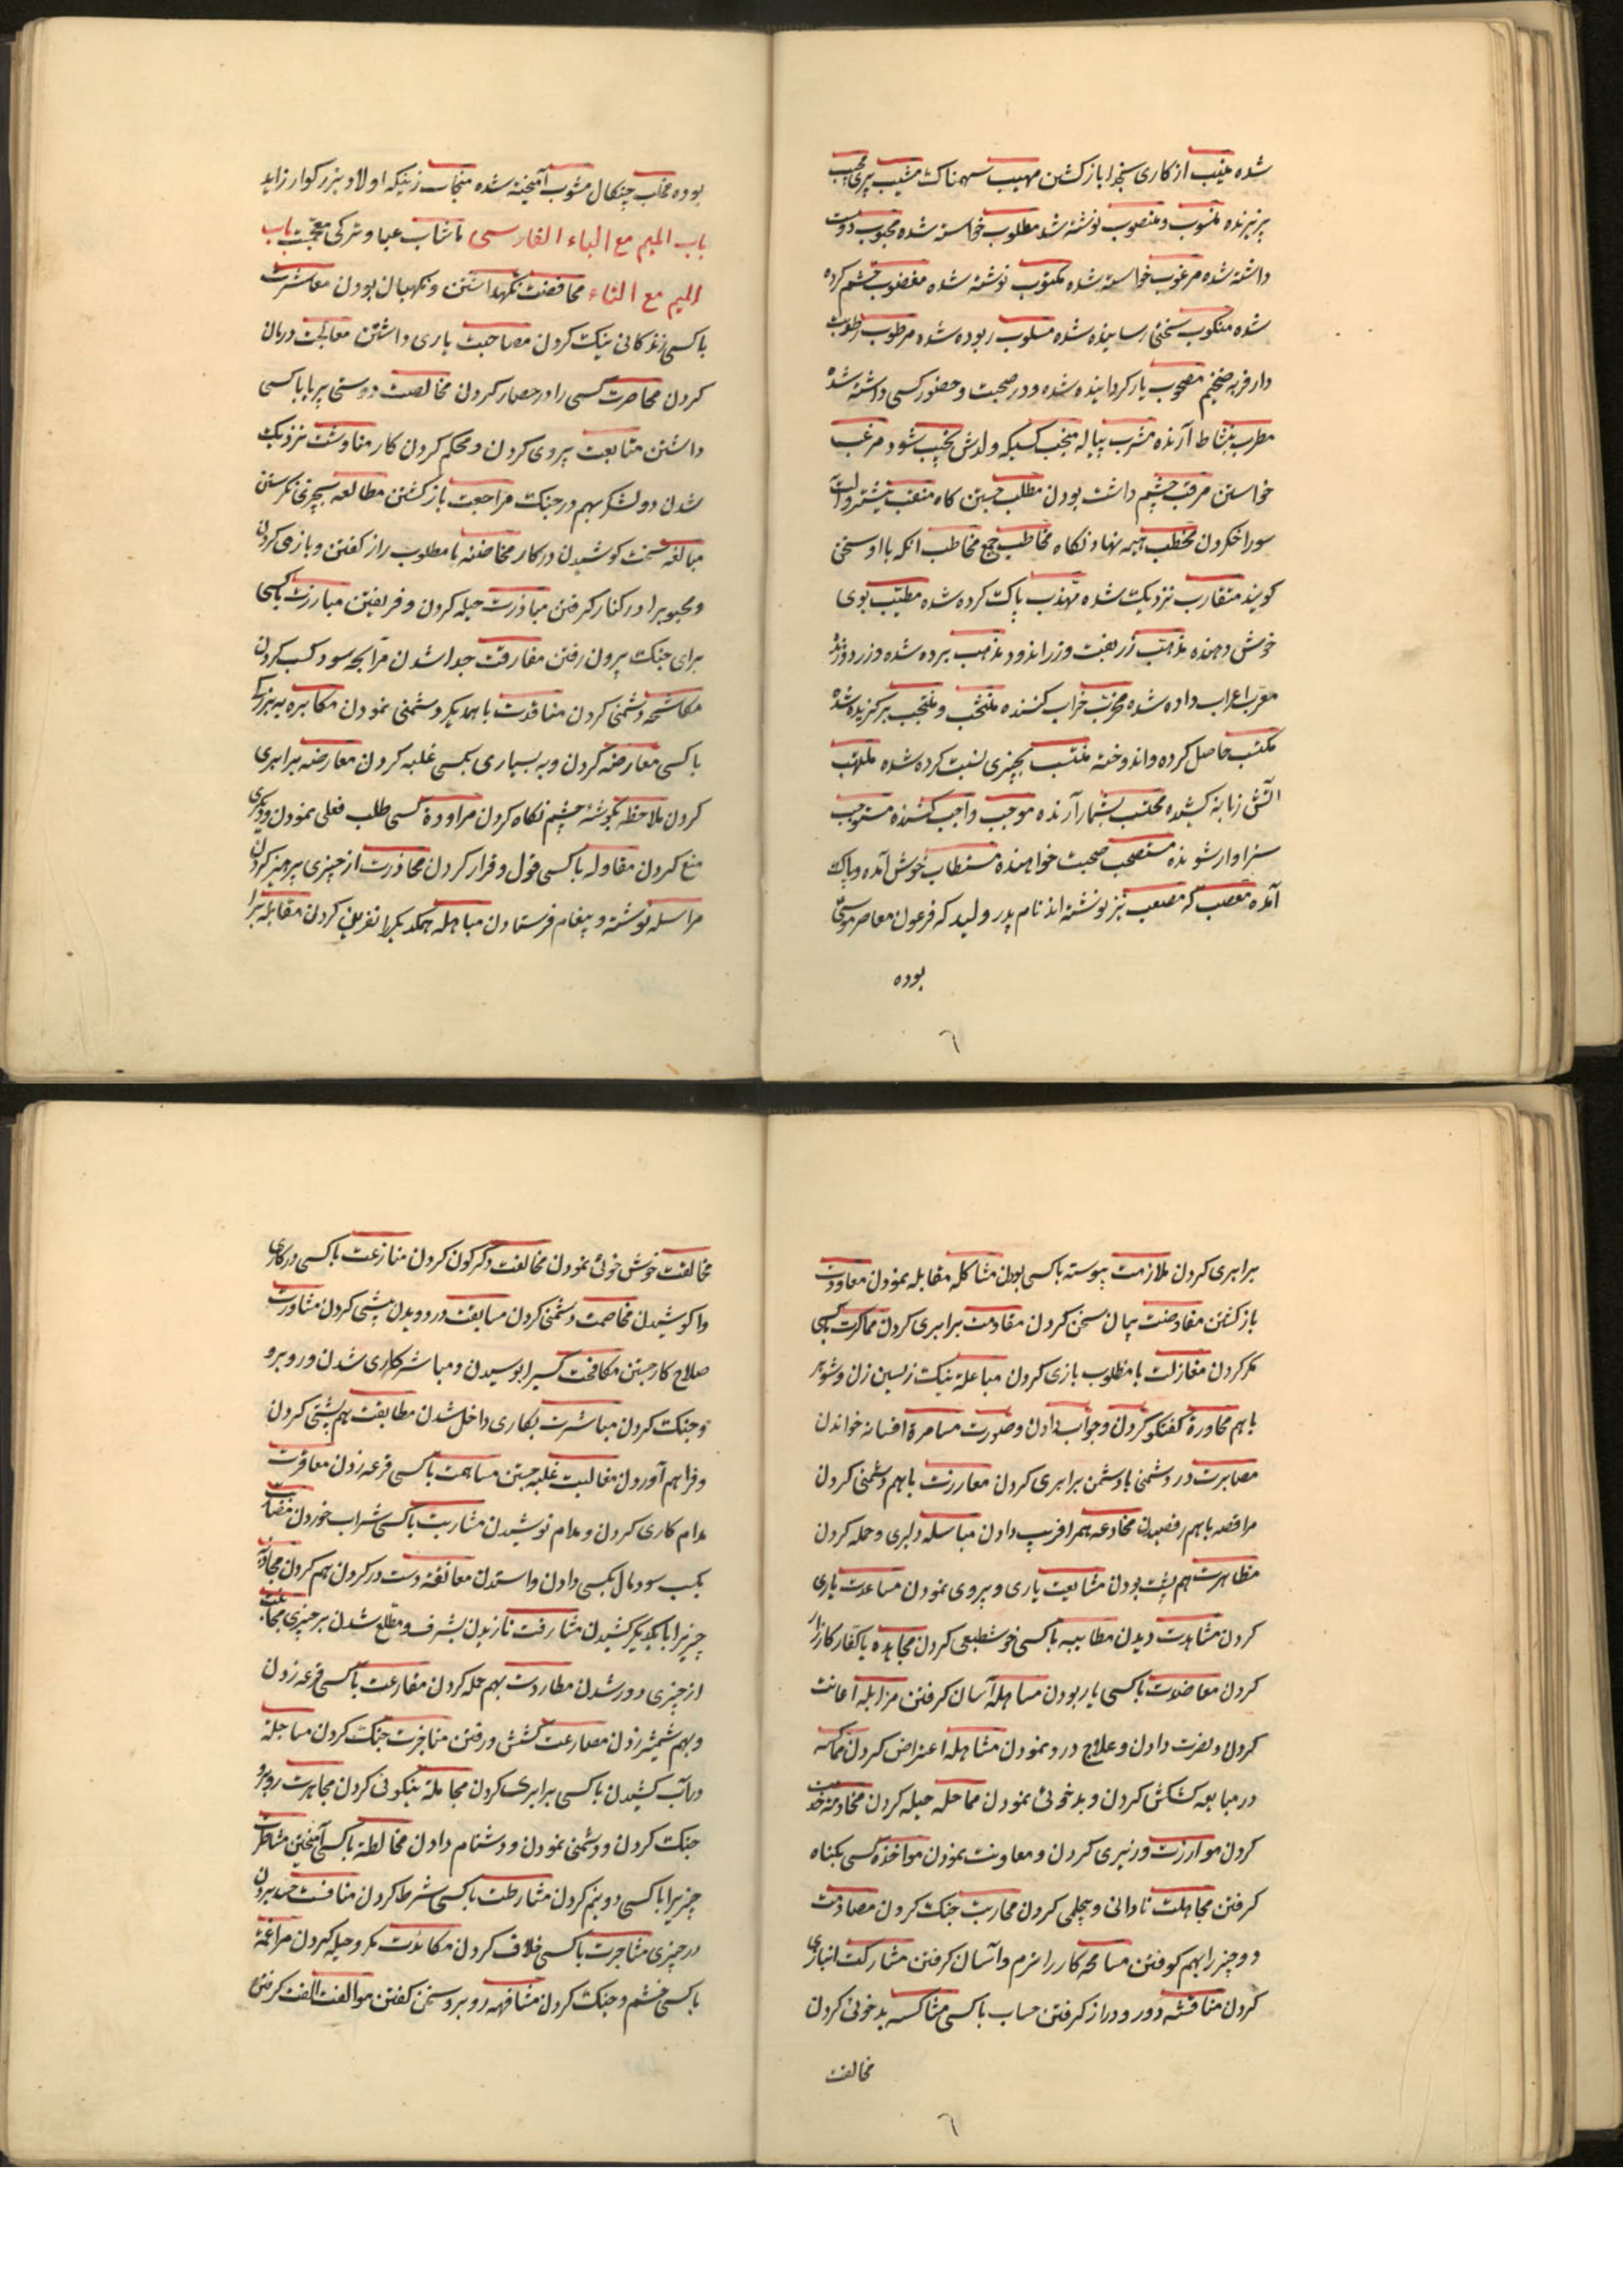 شده منیب از کاری بخدا باز کشتن مهیب سهمناک مشیب پیری مجیب
برنده منسوب و منصوب نوشته شد مطلوب خواسته شده محبوب دوست
داشته شده مرغوب خواسته شده مکتوب نوشته شده مغضوب خشم کرده
شده منکوب سختی رسانیده شده مسلوب ربوده شده مرطوب رطوبت
دار فربه ضخیم مصحوب یار کردانیده شده و در صحبت و حضور کسی داشته شده
مطرب بنشاط آرنده مشرب پیاله منجب کسیکه ولدش نجیب شود مرغب
خواستن مرقب چشم داشت بودن مطلب جستن کاه منقب
سوراخ کردن محطب هیمه نهادنکاه مخاطب جمع مخاطب آنکه با او سخن
کویند متقارب نزدیک شده مهذب پاک کرده شده مطیب بوی
خوش دهنده مذهب زربفت و زر اندود مذهب برده شده و زر دوزند
معرب اعراب داده شده مخرب خراب کننده منتخب و منتجب برکزیده شده
مکتسب حاصل کرده و اندوخته منتسب بچیزی نسبت کرده شده ملتهب
آتش زبانه کشیده محتسب بشمار آرنده موجب واجب کننده مستوجب
سزاوار شونده مستصحب صحبت خواهنده مستطاب خوش آمده و پاک
آمده مصعب که مصیعب نیز نوشته اند نام پدر ولید که فرعون معاصر موسی
بوده
بوده مخلب چنکال مشوب آمیخته شده منجاب زنیکه اولاد بزرکوار زاید
باب المیم مع الباء الفارسی ماشاب عبا و ترکی باب
المیم مع التاء محافضت نکهداشتن و نکهبان بودن معاشرت
با کسی زندکانی نیک کردن مصاحبت یاری داشتن معالجت درمان
کردن محاصرت کسی را در حصار کردن مخالصت دوستی بی ریا با کسی
داشتن متابعت پیروی کردن و محکم کردن کار مناوشت نزدیک
شدن دو لشکر بهم در جنک مراجعت باز کشتن مطالعه بچیزی نکرستن
مبالغه سخت کوشیدن در کار مخاضنه با مطلوب راز کفتن و بازی کردن
و محبوبرا در کنار کرفتن مباذرت حیله کردن و فریفتن مبارزت با کسی
برای جنک بیرون رفتن مفارقت جدا شدن مرابحه سود کسب کردن
مکاشحه دشمنی کردن مناقدت با همدیکر دشمنی نمودن مکابره به بزرکی
با کسی معارضه کردن و به بسیاری بکسی غلبه کردن معارضه برابری
کردن ملاحظه بکوشهٔ چشم نکاه کردن مراودة کسی طلب فعلی نمودن و دیکری
منع کردن مقاوله با کسی قول و قرار کردن محاذرت از چیزی پرهیز کردن
مراسله نوشته و پیغام فرستادن مباهله همدیکر را نفرین کردن مقابله برا
برابری کردن ملازمت پیوسته با کسی بودن مشاکله مقابله نمودن معاودت
باز کشتن مفاوضت بمیان سخن کردن مقاومت برابری کردن مماکرت با کسی
مکر کردن مغازلت با مطلوب بازی کردن مباعله نیک زیستن زن و شوهر
با هم محاورة کفتکو کردن و جواب دادن و صورت مسامرة افسانه خواندن
مصابرت در دشمنی با دشمن برابری کردن معاررت با هم دشمنی کردن
مراقصه با هم رقصیدن مخادعه همرا فریب دادن مباسله دلیری و حمله کردن
مظاهرت هم پشت بودن مشایعت یاری و پیروی نمودن مساعدت یاری
کردن مشاهدت دیدن مطایبه با کسی خوشطبعی کردن مجاهده با کفار کارزار
کردن معاضدت با کسی یار بودن مساهله آسان کرفتن مزابله اعانت
کردن و نصرت دادن و علاج درد نمودن مشاهله اعتراض کردن مماکسه
در مبایعه کشکش کردن و بدخوئی نمودن مماحله حیله کردن مخادمه خدمت
کردن موارزت وزیری کردن و معاونت نمودن مواخذه کسی بکناه
کرفتن مجاهلت نادانی و بیحلمی کردن محاربت جنک کردن مصادمت
دو چیز را بهم کوفتن مسامحه کار را نرم و آسان کرفتن مشارکت انبازی
کردن مناقشه دور و دراز کرفتن حساب با کسی مشاکسه بدخوئی کردن
مخالفت
مخالقت خوش خوئی نمودن مخالفت دکرکون کردن منازعت با کسی در کاری
وا کوشیدن مخاصمت دشمنی کردن مسابقت در دویدن پیشی کردن مشاورت
صلاح کار جستن مکافحت کسیرا بوسیدن و مباشر کاری شدن و روبرو
جنک کردن مباشرت بکاری داخل شدن مطابقت هم پشتی کردن
و فراهم آوردن مغالبت غلبه جستن مساهمت با کسی قرعه زدن معاقرت
مدام کاری کردن و مدام نوشیدن مشاربت با کسی شراب خوردن مضاربت
بکسب سود مال بکسی دادن و استدن معانقه دست در کردن هم کردن مجاذبه
چیزیرا با یکدیکر کشیدن مشارفت نازیدن بشرف و مطلع شدن بر چیزی مجانبت
از چیزی دور شدن مطاردت بهم حمله کردن مقارعت با کسی قرعه زدن
و بهم شمشیر زدن مصارعت کشتی ورفتن مناجزت جنک کردن مساجلة
در آب کشیدن با کسی برابری کردن مجاملة نیکوئی کردن مجاهرت روبرو
جنک کردن و دشمنی نمودن و دشنام دادن مخالطة با کسی آمیختن مشاطرت
چیزیرا با کسی دو نیم کردن مشارطت با کسی شرط کردن منافست حسد بردن
در چیزی مشاجرت با کسی خلاف کردن مکایدت مکر و حیله کردن مراغمة
با کسی خشم و جنک کردن مشافهه روبرو سخن کفتن موالفت الفت کرفتن